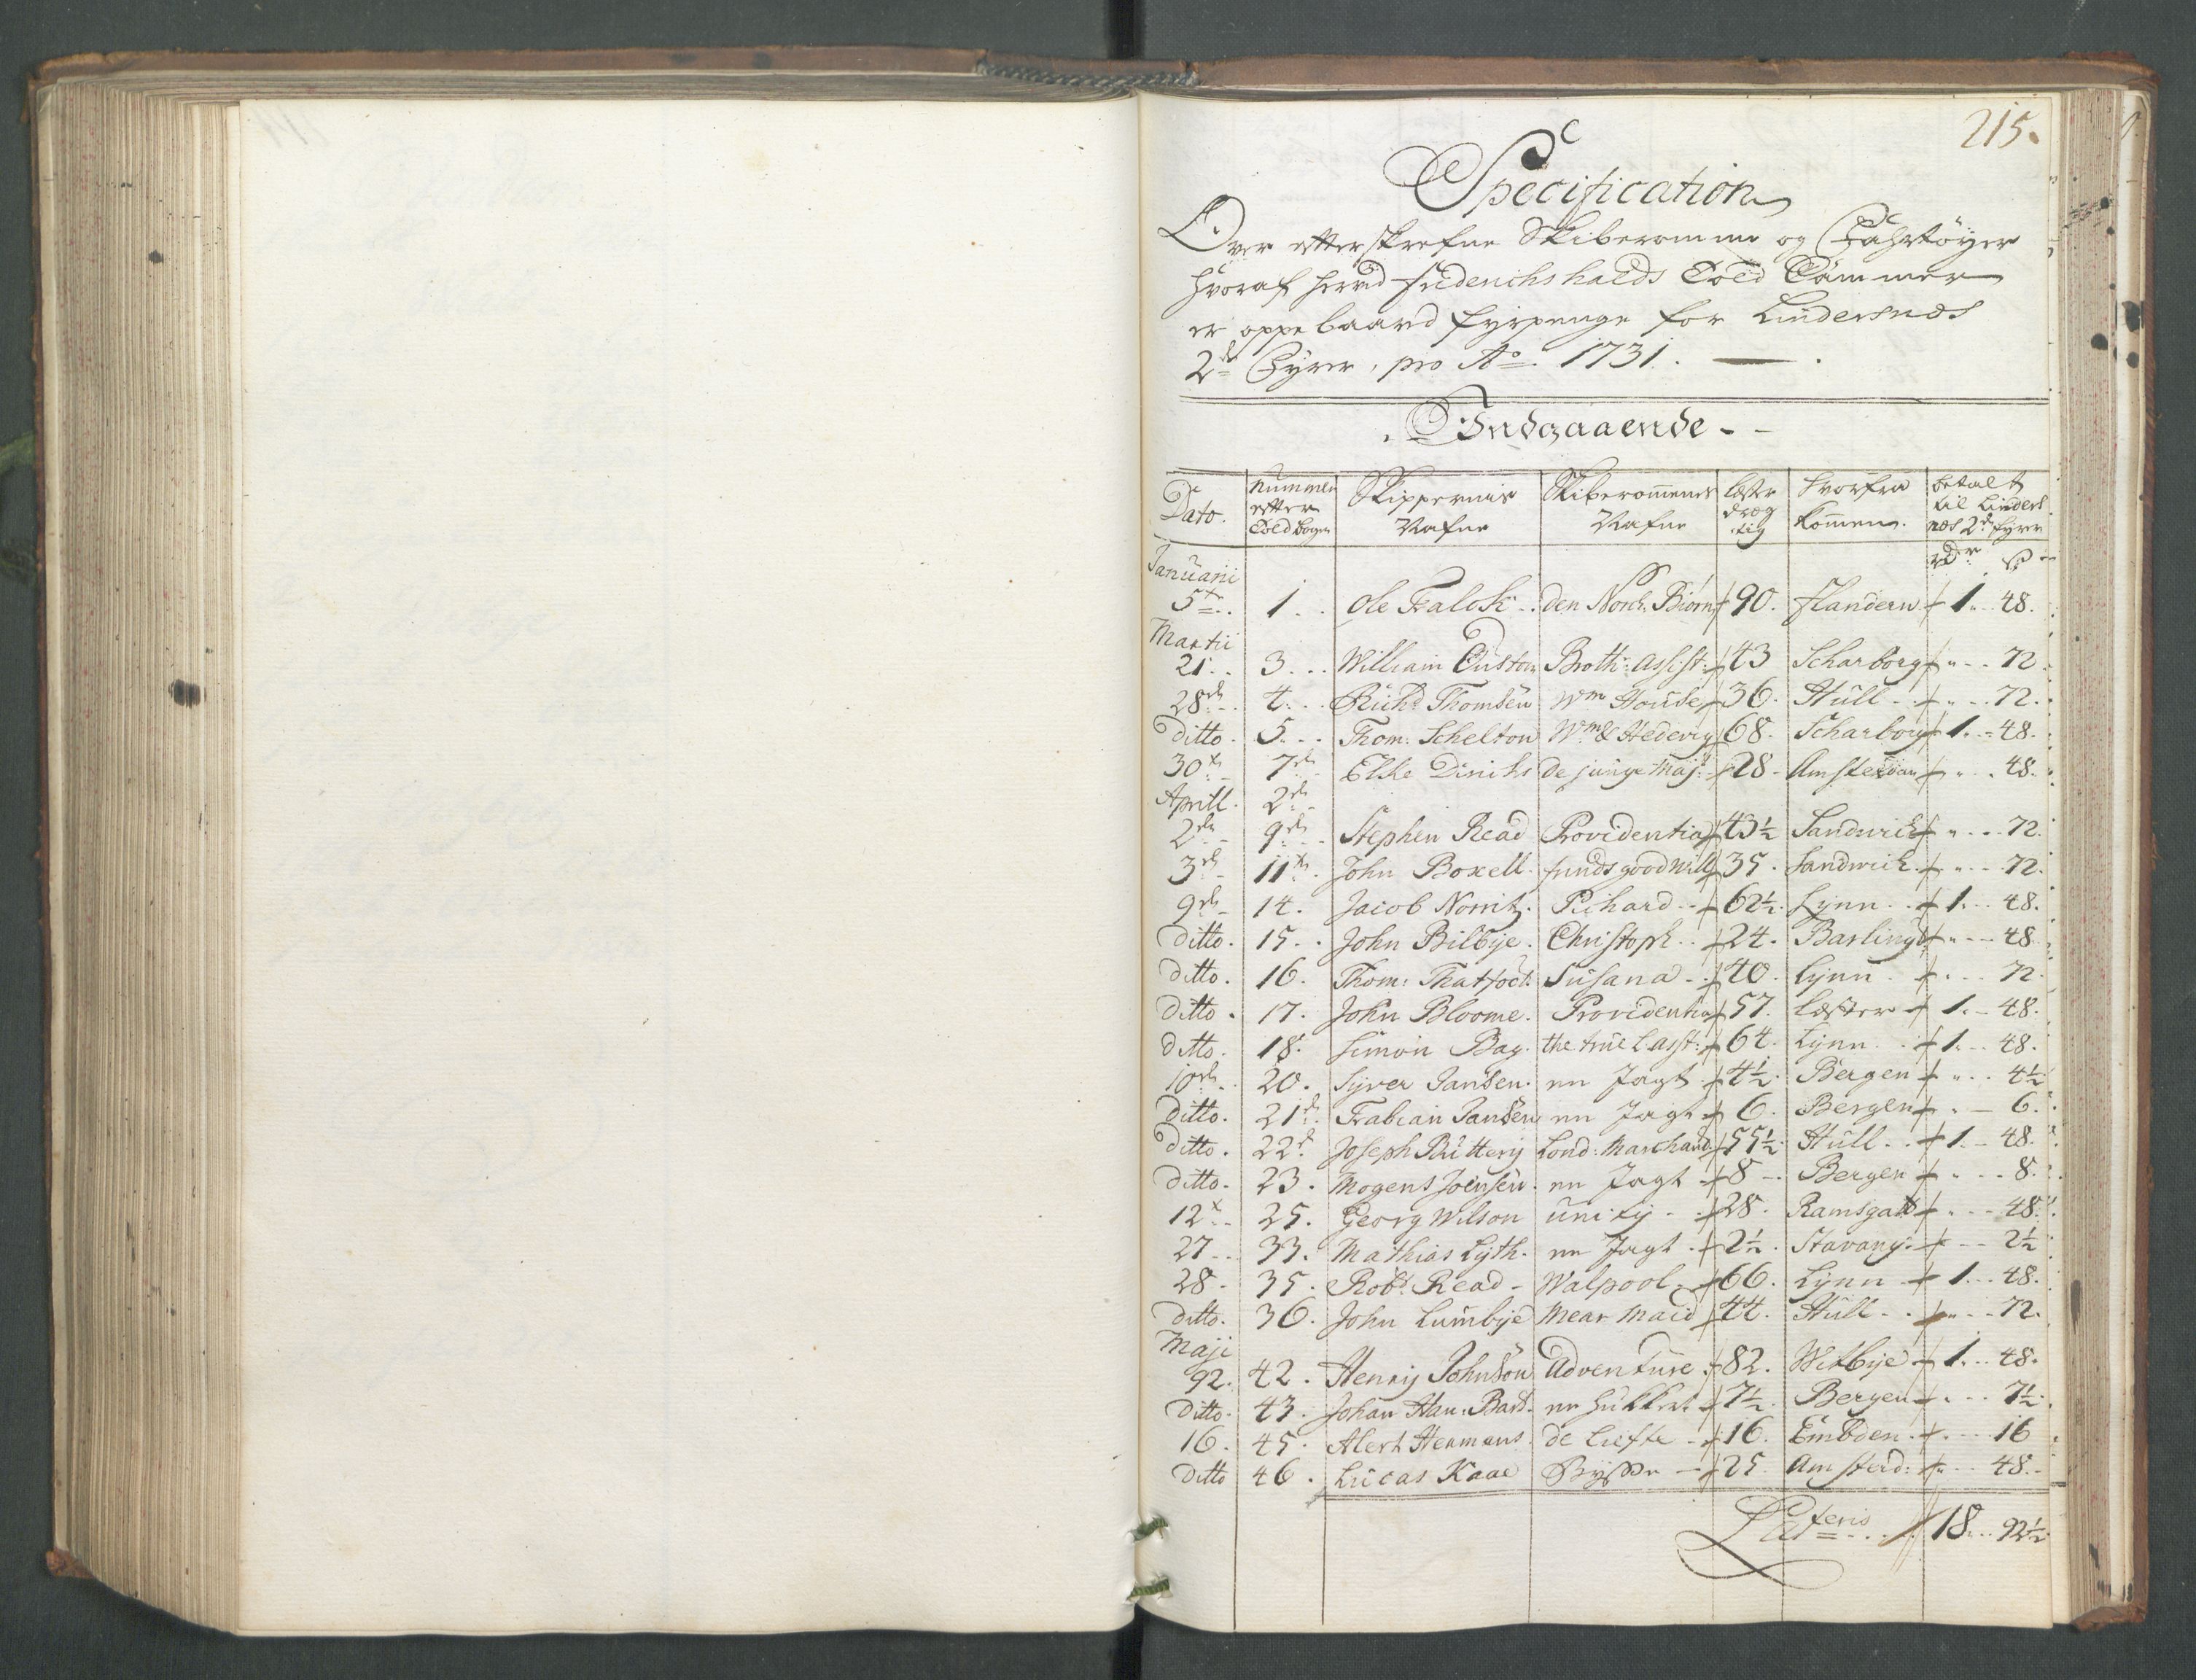 215.
Specification
Over effterskrefne Skiberomme og Fahrtöyer
hvoraf herved friderichshalds Told Cammer
er oppebaared fyrpenge for Lindersnæs
2de Fyrer, pro Ao 1731.
Indgaaende
Dato. | Nummer effter Told bogen | Skippernis Nafne | Skiberommenes Nafne | læster dræg tig | hvorfra kommen. | betalt til Linders næs 2de fyrer
rdr ß
Januarii
5te 1. Ole Falck den Norsk Biørn 90. flandern 1. 48.
Martii
21. 3. William Custon Broth: assist: 43 Scharborg " 72.
28de 4. Richd Thomsen Wm House 36. Hull " 72.
Ditto 5. Thom: Schelton Wm & Hedevig 68. Scharborg 1. 48.
30te 7de Elke Dirichs de junge Maj: 28 Amsterdam " 48.
Aprill. 2de
2den 9de Stephen Read Providentia 43½ Sandwich " 72.
3de 11te John Boxell funds goodwill 35. Sandwich " 72.
9de 14. Jacob Norritz. Richard 62½. Lynn 1. 48.
Ditto. 15. John Bilbye. Christoph 24. Barlingt " 48
Ditto. 16. Thom: Thatfoct. Susana 40. Lynn " 72.
Ditto. 17. John Bloome. Providentia 57. Læster 1. 48.
Ditto. 18. Simon Bag. the true l. asst: 64. Lynn 1. 48.
10de 20. Syver Jansen. en Jagt 4½. Bergen " 4½
Ditto. 21de Frabian Jansen en Jagt 6. Bergen " 6.
Ditto. 22de Joseph Buttery Lond: Marchand 55½. Hull 1. 48.
Ditto. 23. Mogens Joensen. en Jagt 8 Bergen " 8.
12te 25. Georg Wilson unity 28. Ramsgatt " 48.
27 33. Mathias Lyth. en Jagt 2½. Stavang: 2½
28 35. Robt Read Walpool 66. Lynn 1. 48.
Ditto. 36. John Lumbye Mear Maid 44. Hull " 72.
Maji
92. 42. Henry Johnson Adventure 82. Witbye 1. 48.
Ditto. 43. Johan Han: Bart. en hukkert 7½. Bergen " 7½.
16. 45. Alert Hermans. de Liefte 16. Embden 16
Ditto 46. Lucas Kaae Bysse 25. Amsterd: " 48.
Lateris 18. 92½.